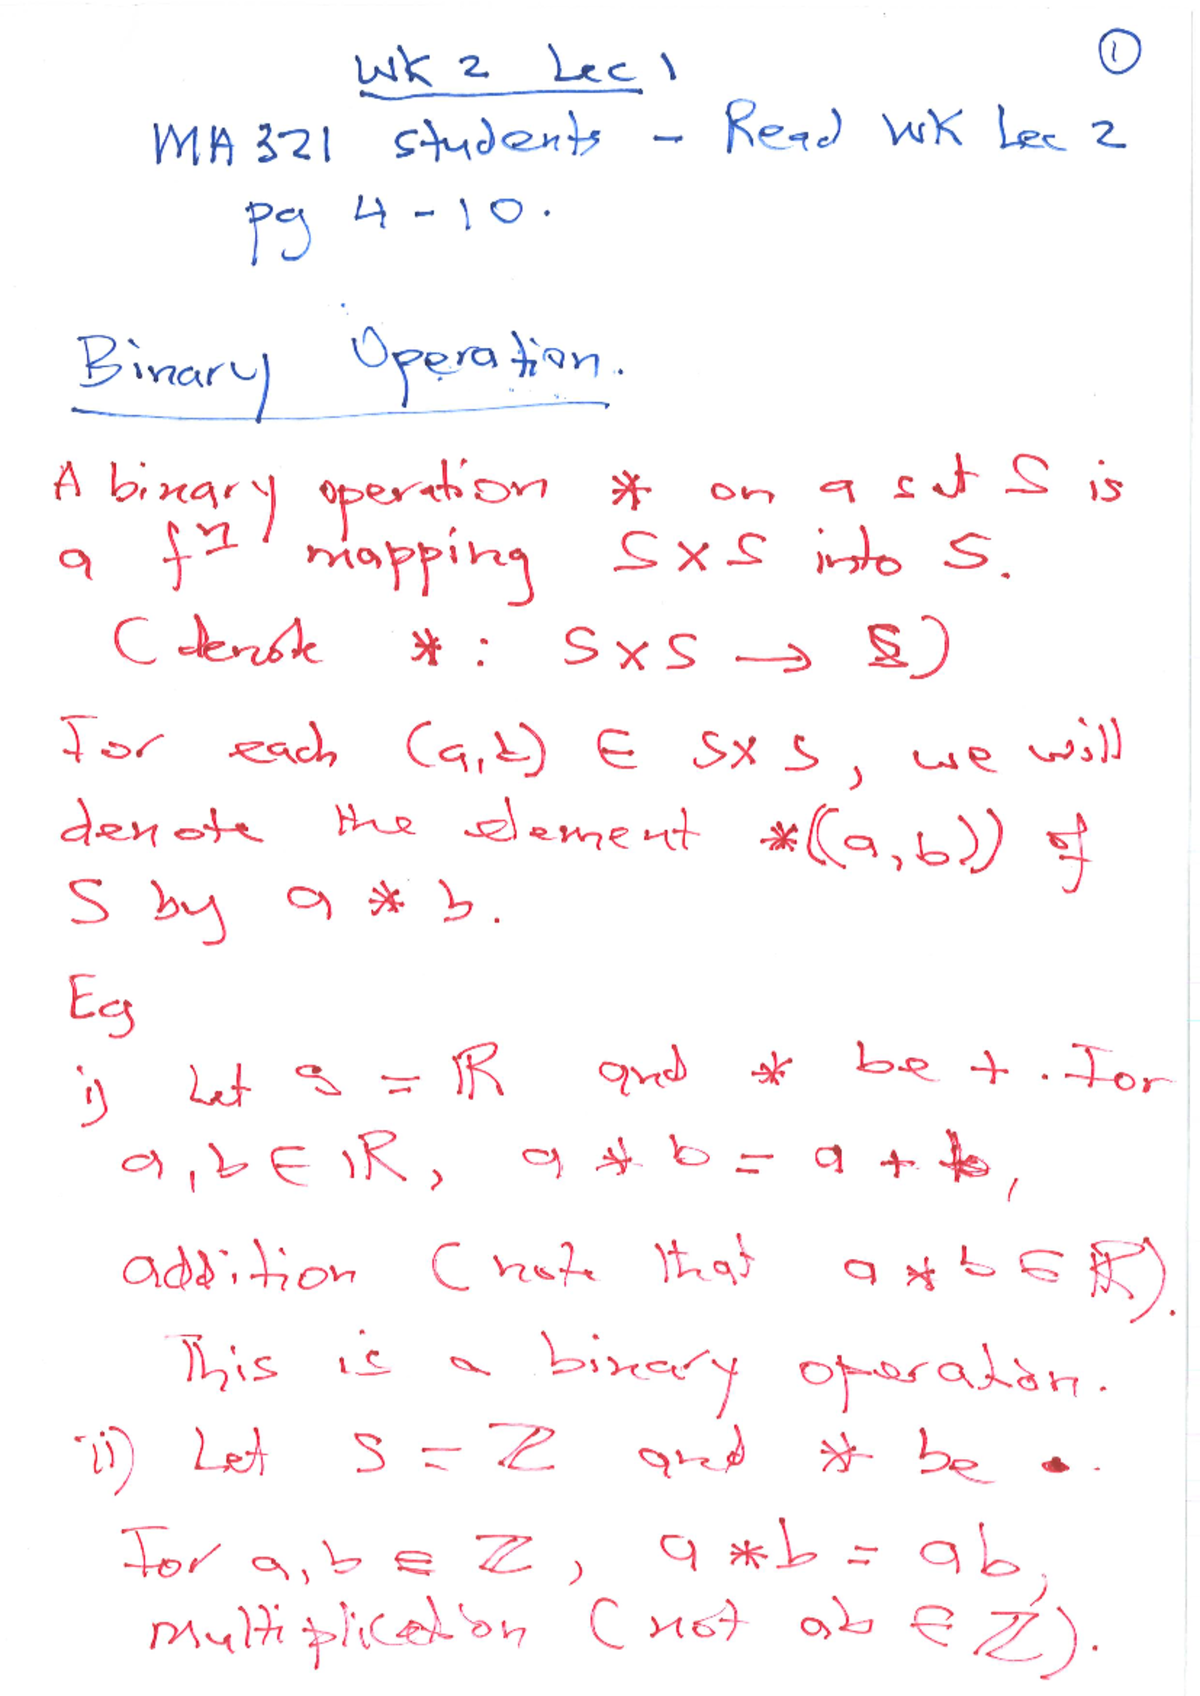 1
WK 2 Lec 1
MA 321 students - Read WK Lec 2
pg 4 - 10.
Binary Operation.
A binary operation * on a set S is
a fⁿ mapping S×S into S.
(denote * : S×S → S)
For each (a,b) ∈ S×S, we will
denote the element *((a,b)) of
S by a * b.
Eg
i) Let S = ℝ and * be +. For
a,b ∈ ℝ, a * b = a + b,
addition (note that a * b ∈ ℝ).
This is a binary operation.
ii) Let S = ℤ and * be •.
For a,b ∈ ℤ, a * b = ab,
multiplication (not ab ∈ ℤ).